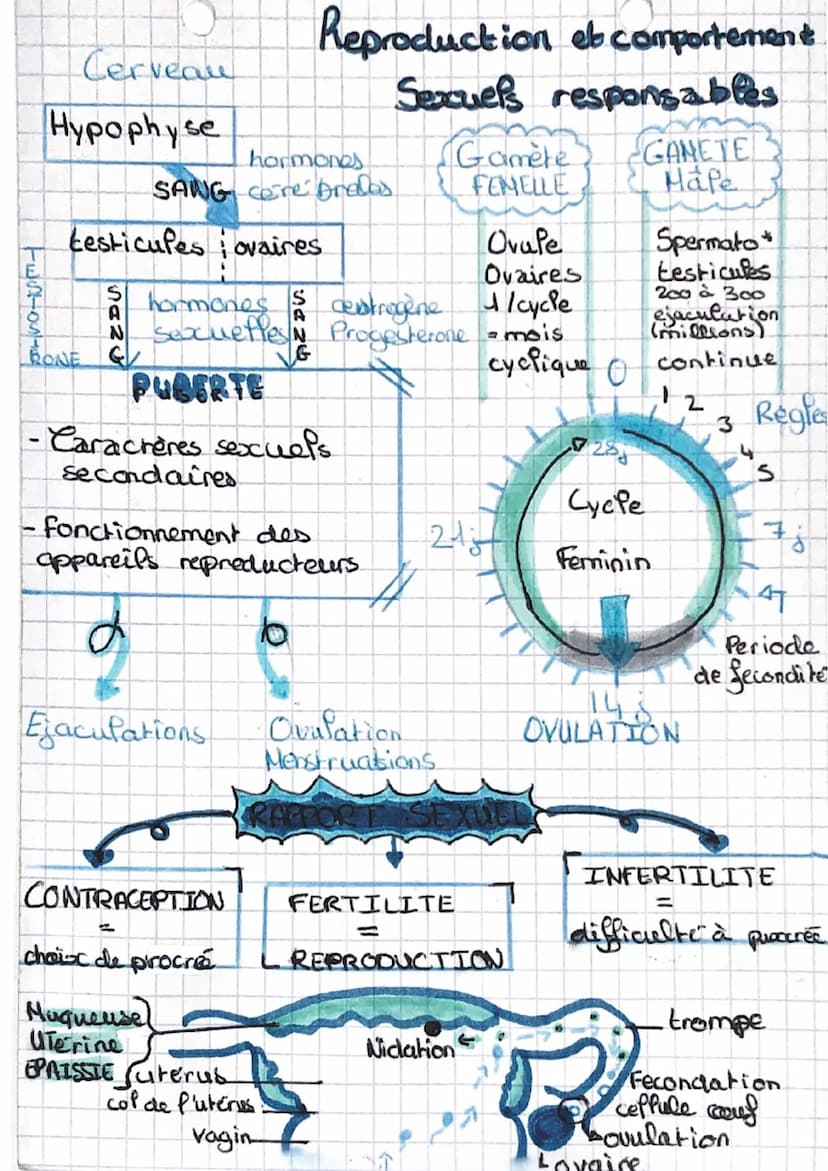 Reproduction et comportement
Sexuels responsables
Cerveau
Hypophyse
hormones
SANG cérébrales
testicules ovaires
TESTOSTÉRONE
SANG
hormones
sexuelles
SANG
œstrogène
Progesterone
PUBERTE
- Caracrères sexuels
secondaires
- Fonctionnement des
appareils repreducteurs
Ejaculations
Ovulation
Menstruations
Gamète
FEMELLE
Ovule
Ovaires
1/cycle
= mois
cyclique
GAMETE
Mâle
Spermato*
testicules
200 à 300
ejaculation
(millions)
continue
0
1
2
3
Règles
4
5
7j
28j
21j
Cycle
Feminin
Periode
de fecondité
14 j
OVULATION
RAPPORT SEXUEL
CONTRACEPTION
=
choix de procré
FERTILITE
=
REPRODUCTION
INFERTILITE
=
difficulté à procrée
Muqueuse
UTérine
EPAISSIE
utérus
col de l'utérus
vagin
Nidation
trompe
Fecondation
cellule œuf
ovulation
ovaire